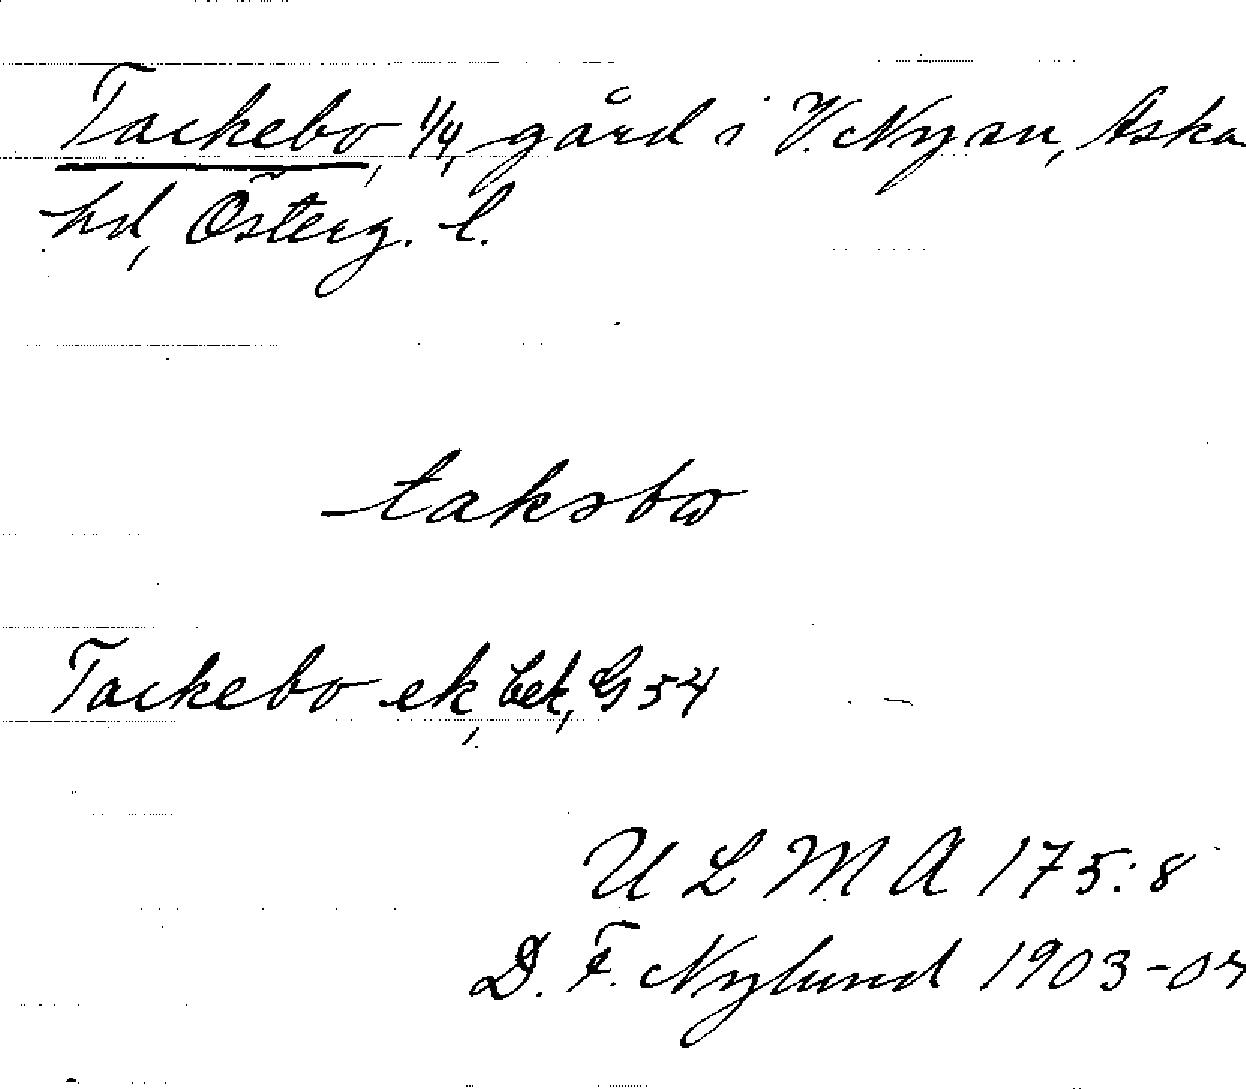 Tackebo, 1/4, gård i V. Ny sn, Aska
hd, Österg. l.
taksbo
Tackebo ek, bek, G 54
U L M A 175:8
D. F. Nylund 1903-04